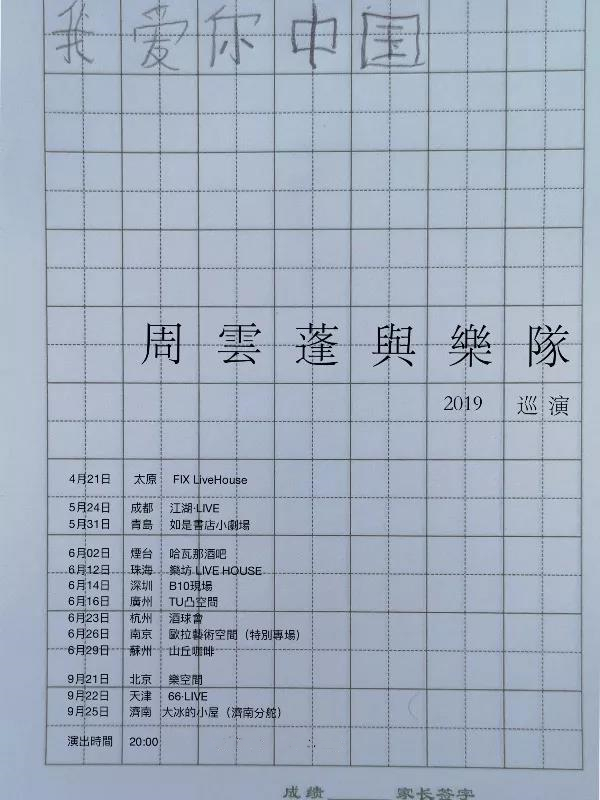 我爱你中国
周雲蓬與樂隊
2019 巡演
4月21日 太原 FIX LiveHouse
5月24日 成都 江湖·LIVE
5月31日 青島 如是書店小劇場
6月02日 煙台 哈瓦那酒吧
6月12日 珠海 樂坊 LIVE HOUSE
6月14日 深圳 B10現場
6月16日 廣州 TU凸空間
6月23日 杭州 酒球會
6月26日 南京 歐拉藝術空間（特別專場）
6月29日 蘇州 山丘咖啡
9月21日 北京 樂空間
9月22日 天津 66·LIVE
9月25日 濟南 大冰的小屋（濟南分舵）
演出時間 20:00
成绩______ 家长签字